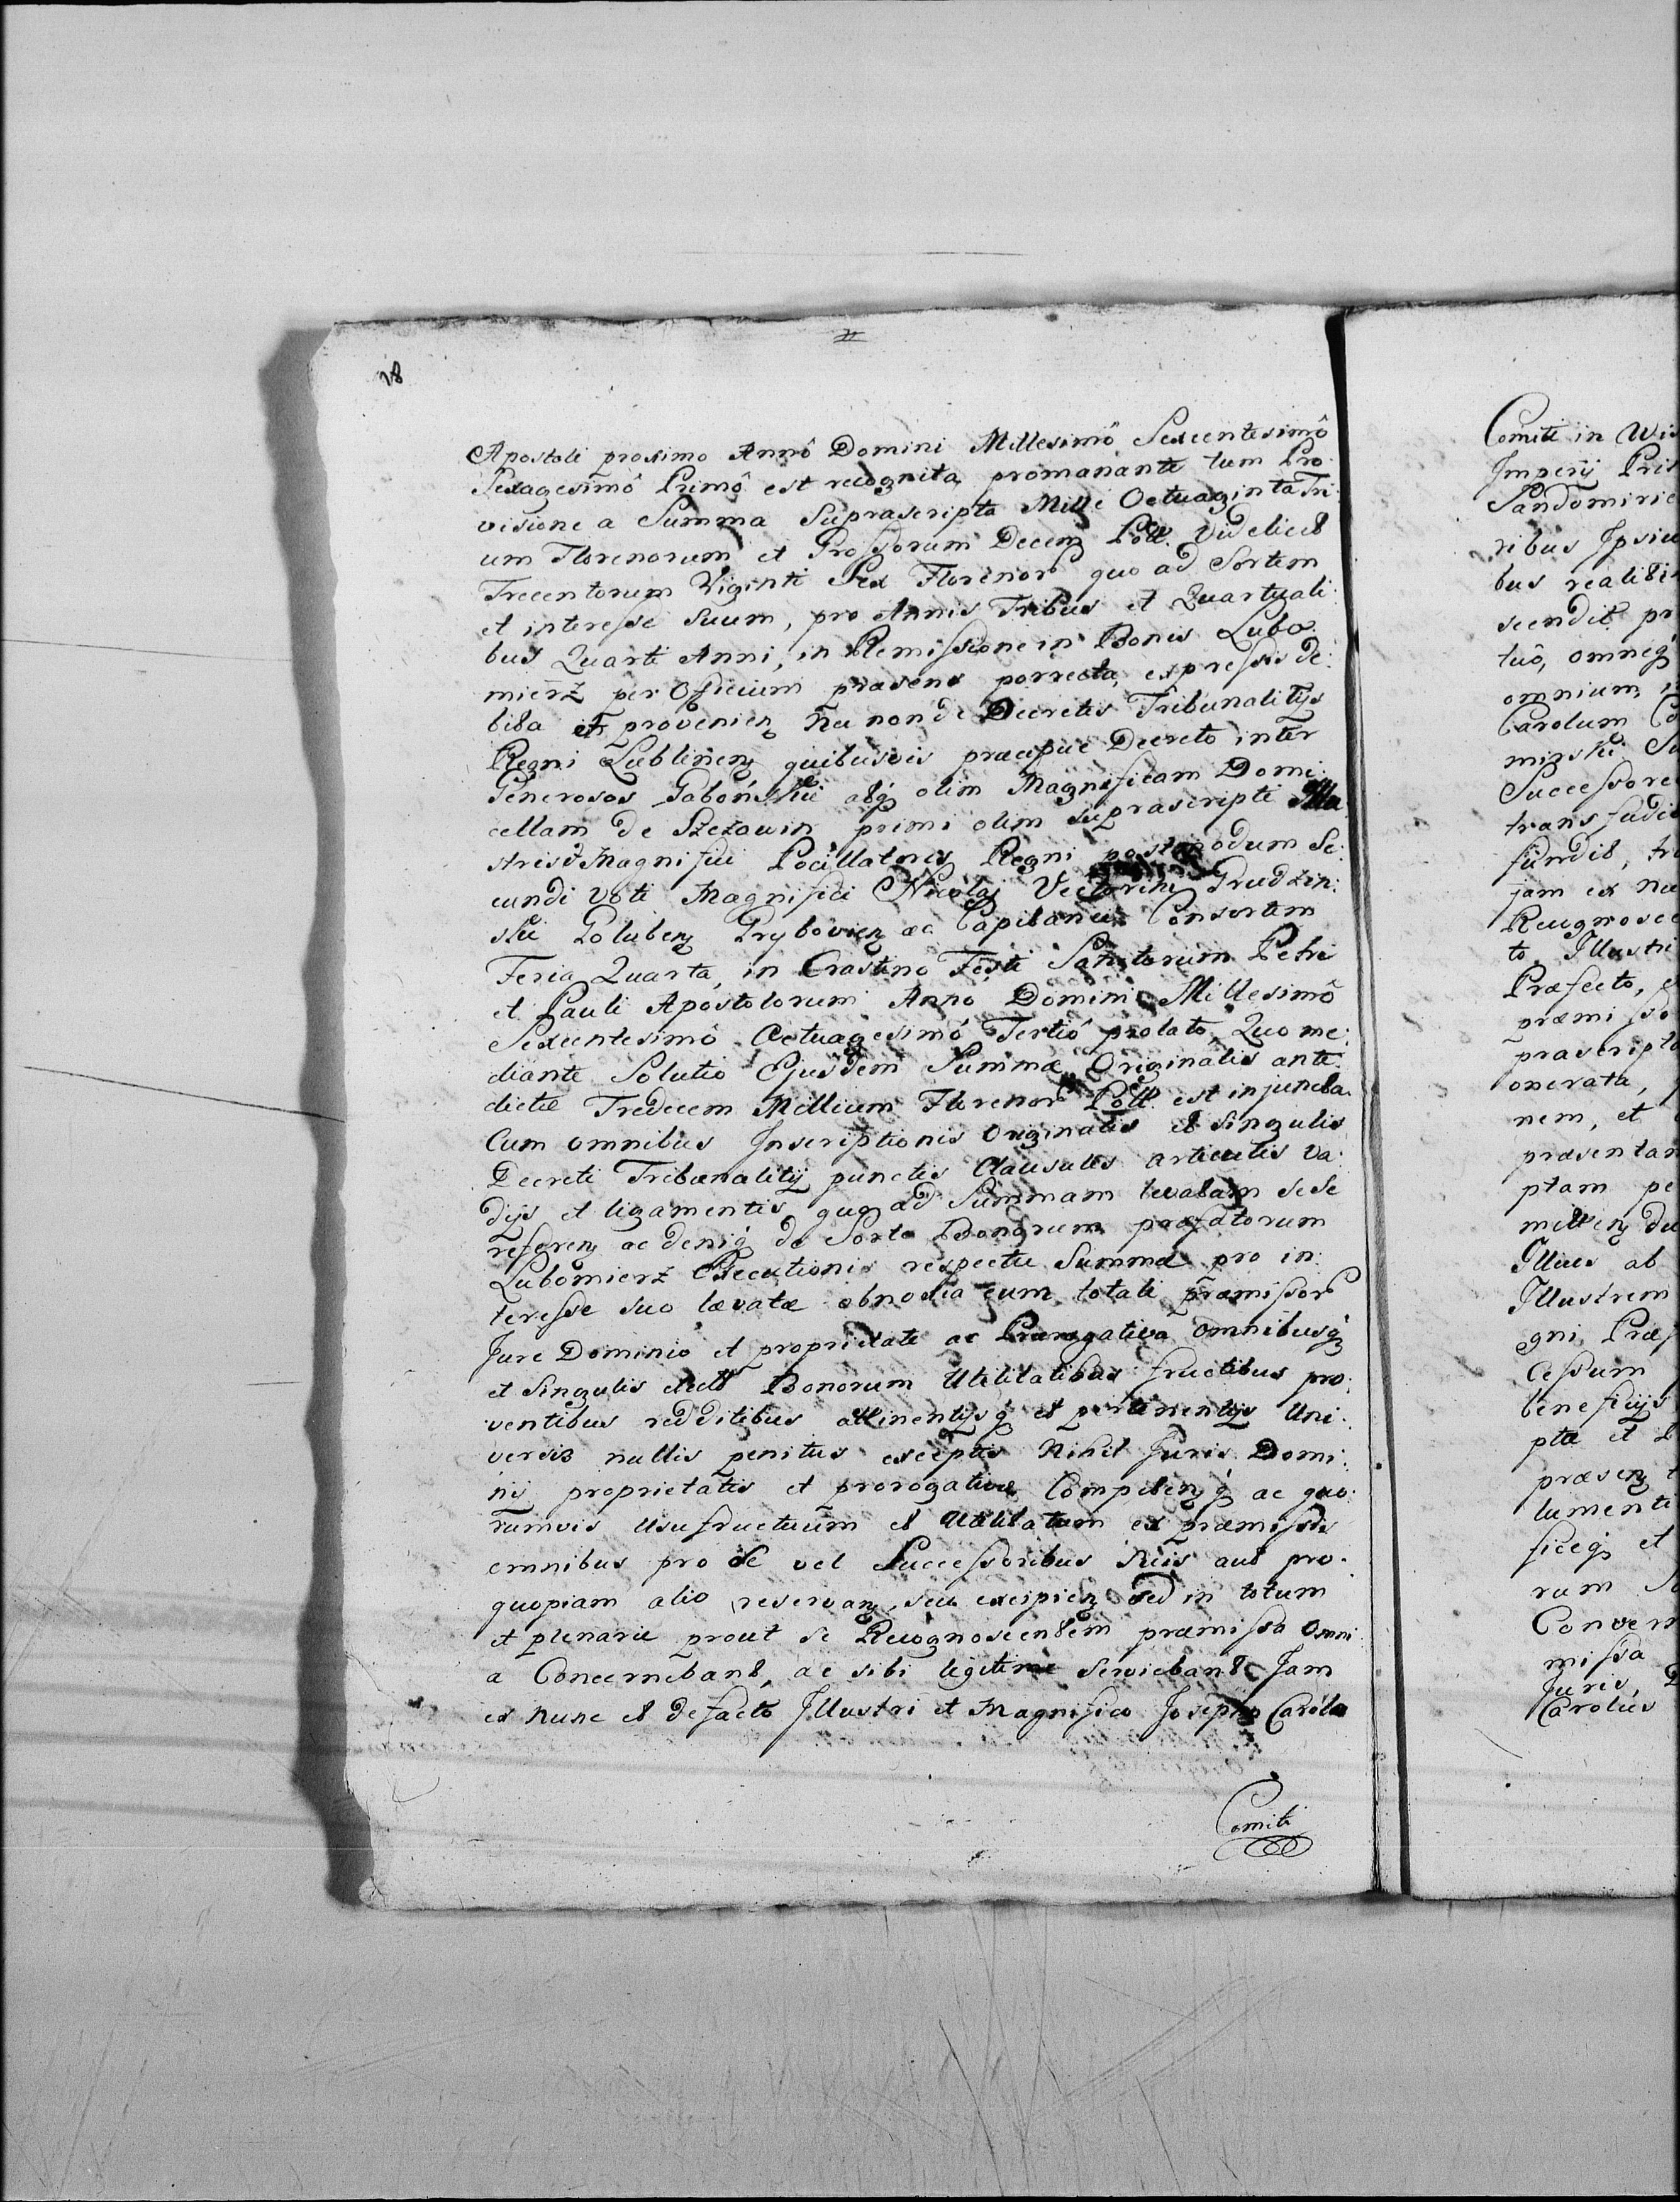 18
Apostoli proximo Annô Domini Millesimô Sexcentesimô
Sexagesimô Primô est recognita promanante tum Pro
visione a Summa Suprascripta Mille Octuaginta Tri
um Florenorum et Grossorum Decem Poll. Videlicet
Trecentorum Viginti Sex Florenor quo ad Sortem
et interesse Suum, pro Annis Tribus et Quartuali:
bus Quarti Anni, in Remissione in Bonis Lubo
mierz per Officium præsens porrecta, expressis de:
bita et provenien nec non de Decretis Tribunalitijs
Regni Lublinen quibusvis præcipue Decreto inter
Generosos Gaboński absq olim Magnificam Domi:
cellam de Szczawin primi olim Suprascripti Illu
stris & Magnifici Pocillatoris Regni postmodum Se:
cundi Voti Magnifici Nicolaj Victorini Grudzin:
ski Goluben Grybovien ac Capitanei Consortem
Feria Quarta, in Crastino Festi Sanctorum Petri
et Pauli Apostolorum Anno Domini Millesimô
Sexcentesimô Octuagesimô Tertiô prolato, Quo me:
diante Solutio Ejusdem Summæ Originalis ante
dictæ Tredecem Millium Florenor Poll. est injuncta
Cum omnibus Inscriptionis Originalis et singulis
Decreti Tribunalitij punctis Clausulis articulis va:
dijs et ligamentis quo ad Summam levatam sese
referen ac deniq de Sorte Bonorum præfatorum
Lubomierz Executionis respectu Summæ pro in:
teresse suo lævatæ obnoxia cum totali præmissor
Jure Dominio et proprietate ac Prærogativa omnibusq
et Singulis dictt Bonorum Utilitatibus fructibus pro:
ventibus redditibus attinentijsq et pertinentijs Uni:
versis nullis penitus exceptis Nihil Juris Domi:
nij proprietatis et prorogativæ Competenq ac quo:
rumvis Usufructuum et Utilitatum ex præmissis
omnibus pro Se vel Successoribus suis aut pro.
quopiam alio reservan, seu excipien sed in totum
et plenarie prout se Recognoscentem præmissa Omni
a Concernebant, ac sibi legitime Serviebant Jam
ex Nunc et de facto Illustri et Magnifico Josepho Carolo
Comiti
Comiti in Wis
Imperij Pris
Sandomirie
ribus Ipsiu
bus realibi
scendit pr
tuô, omneq
omnium
Carolum Co
mirski Su
Successore
transfudit
fundit, tr
jam ex nu
Recognosce
to Illustri
Præfecto, e
præmisso
præscripto
onerata,
nem, et
præsentan
ptam pe
mitten du
Illius ab
Illustrem
gni Præf
Cessum
beneficijs
ptæ et
præsen t
lumenti
ficeq et
rum
Convern
missa
Juris,
Carolus